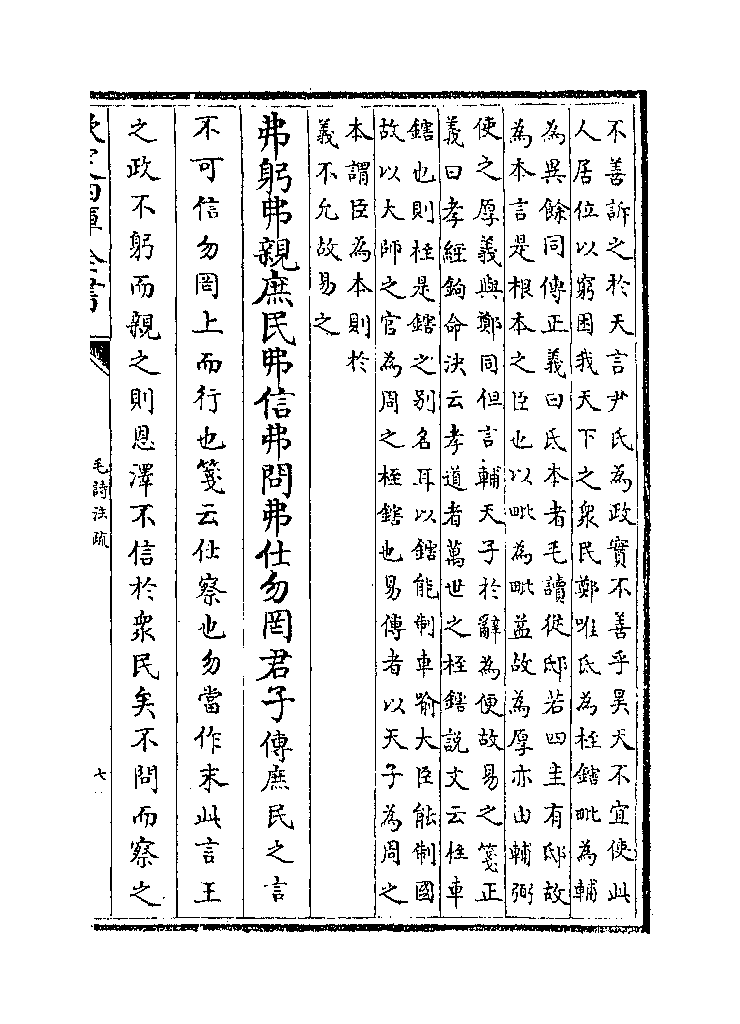 不善訴之於天言尹氏為政實不善乎昊天不宜使此
人居位以窮困我天下之衆民鄭唯氏為桎鎋毗為輔
為異餘同傳正義曰氐本者毛讀從邸若四圭有邸故
為本言是根本之臣也以毗為毗益故為厚亦由輔弼
使之厚義與鄭同但言輔天子於辭為便故易之箋正
義曰孝經鉤命決云孝道者萬世之桎鎋說文云桎車
鎋也則桎是鎋之别名耳以鎋能制車喻大臣能制國
故以大師之官為周之桎鎋也易傳者以天子為周之
本謂臣為本則於
義不允故易之
弗躬弗親庶民弗信弗問弗仕勿罔君子傳庶民之言
不可信勿罔上而行也箋云仕察也勿當作末此言王
之政不躬而親之則恩澤不信於衆民矣不問而察之
欽定四庫全書
毛詩注疏
七